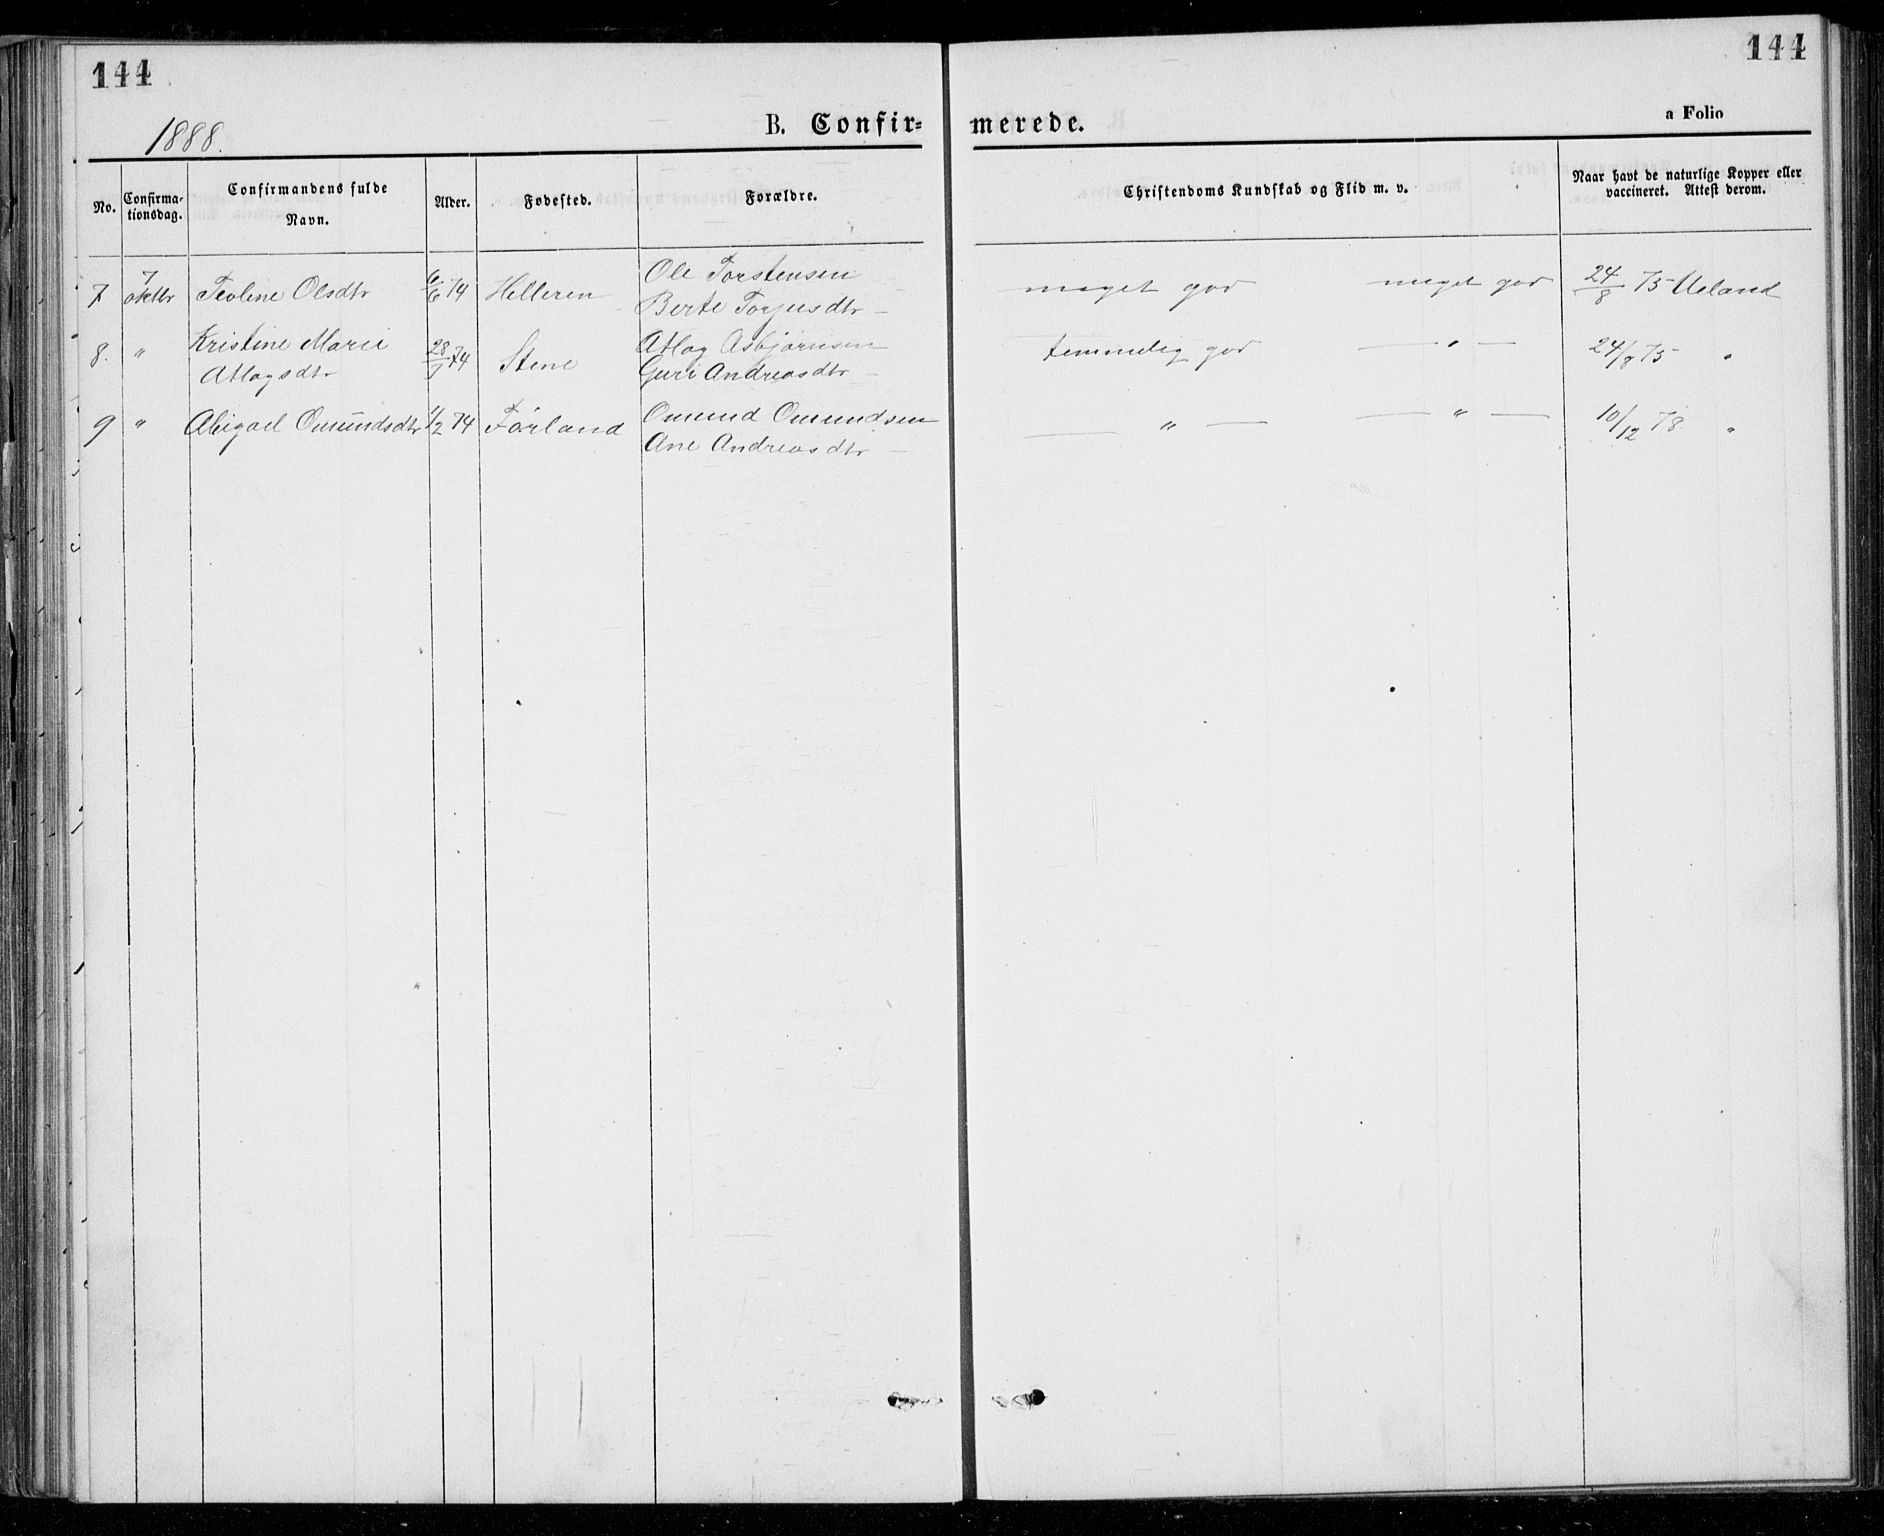 144
144
1888.
B. Confir=
merede.
a Folio
No.
Confirma-
tionsdag.
Confirmandens fulde
Navn.
Alder.
Fødested.
Forældre.
Christendoms Kundskab og Flid m. v.
Naar havt de naturlige Kopper eller
vaccineret. Attest derom.
7 7 oktbr Teoline Olsdtr 6/6 74 Helleren Ole Torstensen meget god meget god 24/8 75 Ueland
Berte Torjusdtr
8. " Kristine Marie 74 Stene Atlag Asbjørnsen temmelig god — " — 24/8 75 "
Atlagsdtr Guri Andreasdtr
9 " Abigael Omundsdtr 1/2 74 Førland Omund Omundsen — " — — " — 10/12 78 "
Ane Andreasdtr